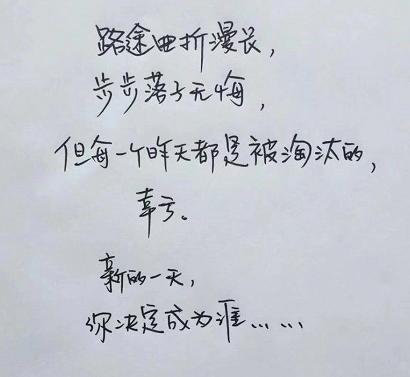 路途曲折漫长，
步步落子无悔，
但每一个昨天都是被淘汰的，
幸亏。
新的一天，
你决定成为谁……